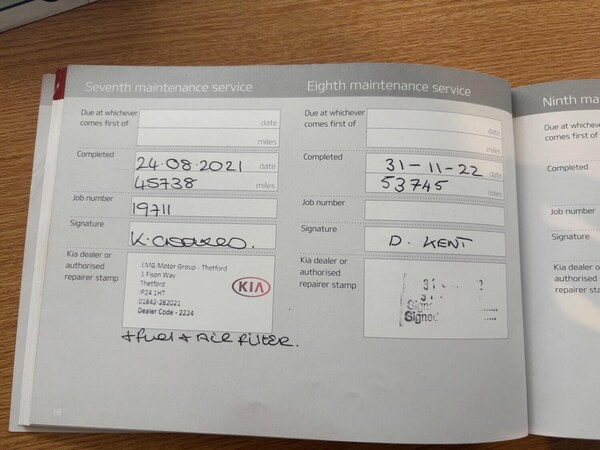 Seventh maintenance service
Due at whichever
comes first of
date
miles
Completed
24.08.2021 date
45738 miles
Job number
19711
Signature
Kia dealer or
authorised
repairer stamp
MG Motor Group - Thetford
1 Fison Way
Thetford
IP24 1HT
01842-282021
Dealer Code - 2224
KIA
+ fuel + AIR FILTER.
Eighth maintenance service
Due at whichever
comes first of
date
miles
Completed
31-11-22 date
53745 miles
Job number
Signature
D. KENT
Kia dealer or
authorised
repairer stamp
31
31
Signed
Ninth ma
Due at whicheve
comes first of
Completed
Job number
Signature
Kia dealer or
authorised
repairer sta